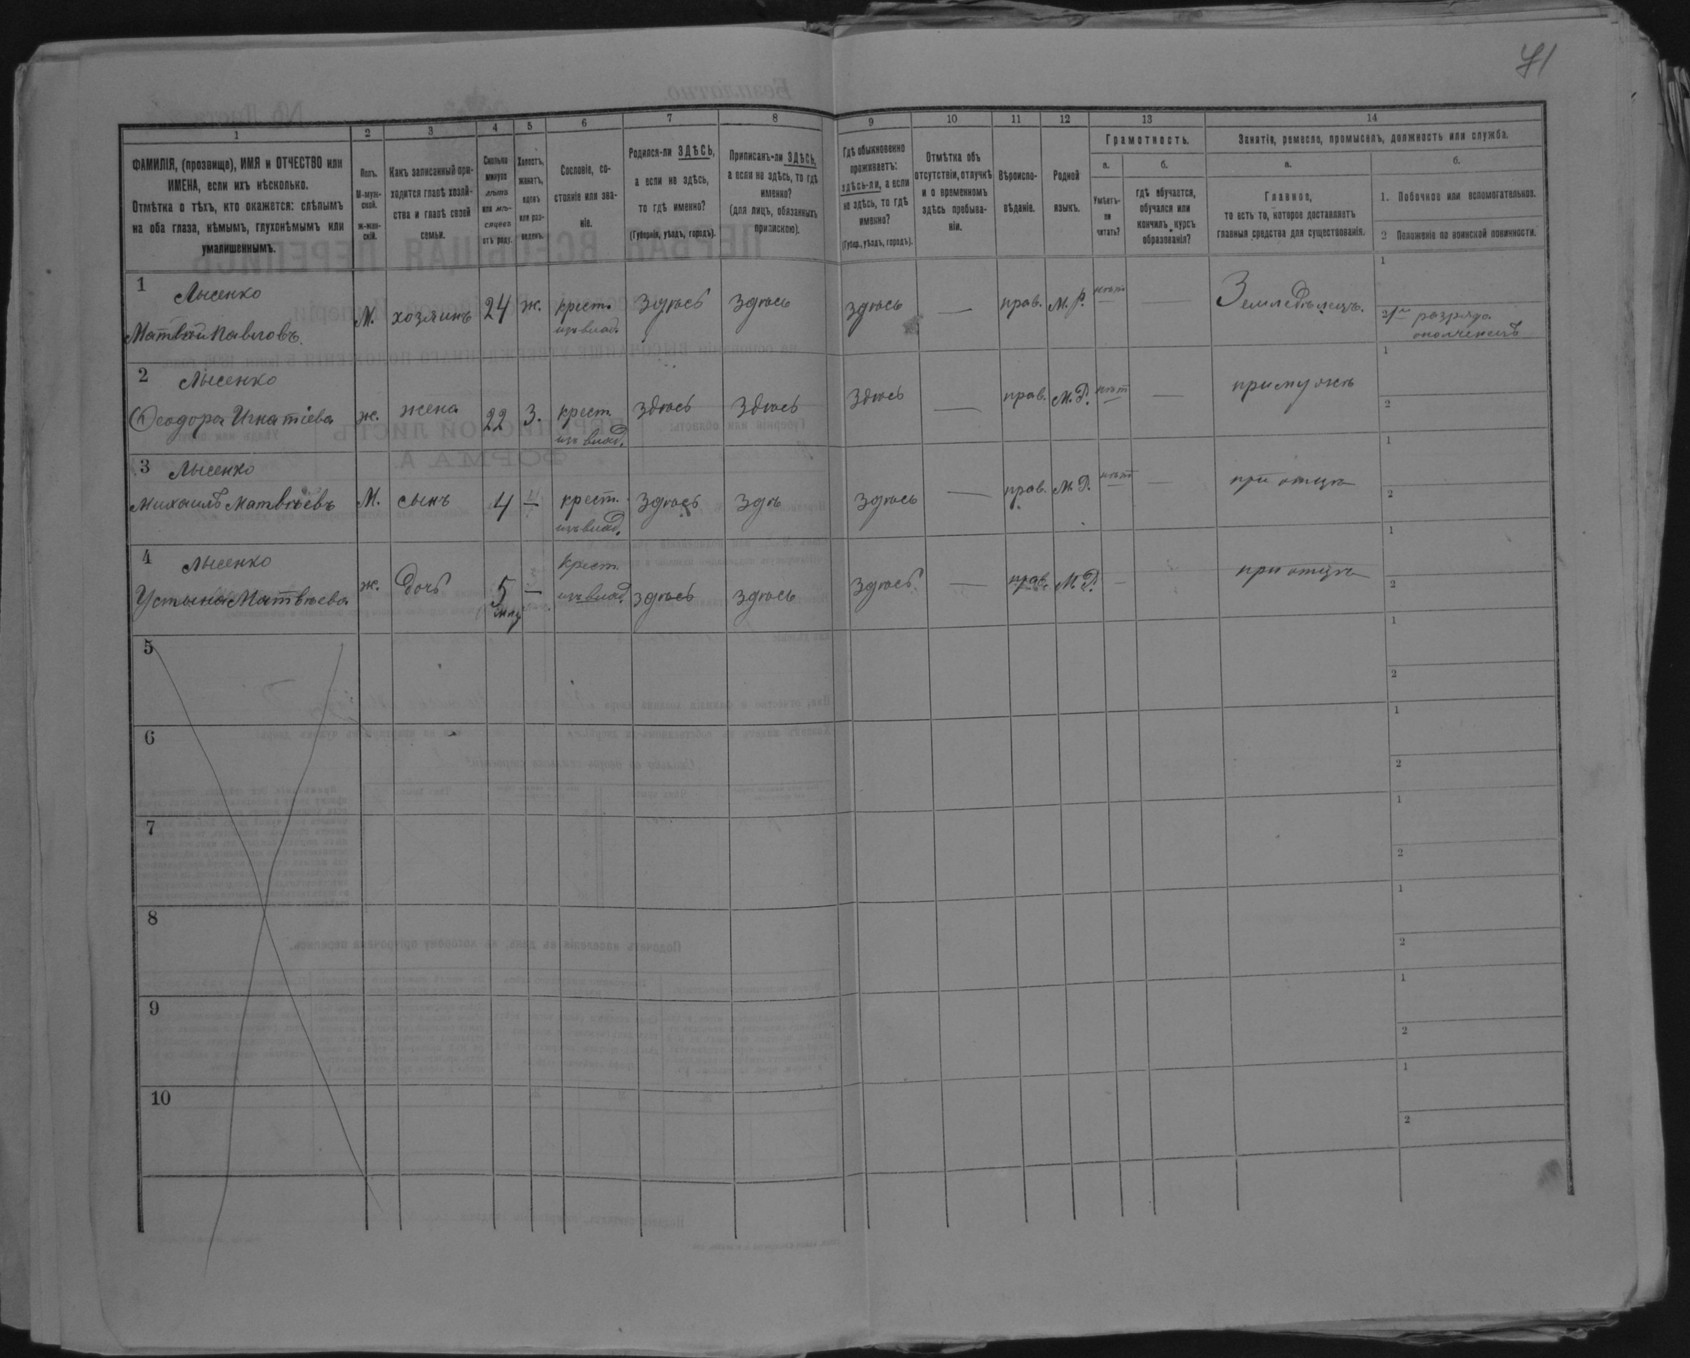 71
1 2 3 4 5 6 7 8 9 10 11 12 13 14
ФАМИЛІЯ, (прозвище), ИМЯ и ОТЧЕСТВО или
ИМЕНА, если ихъ нѣсколько.
Отмѣтка о тѣхъ, кто окажется: слѣпымъ
на оба глаза, нѣмымъ, глухонѣмымъ или
умалишеннымъ.
Полъ.
М-муж-
ской.
Ж-жен-
скій.
Какъ записанный при-
ходится главѣ хозяй-
ства и главѣ своей
семьи.
Сколько
минуло
лѣтъ
или мѣ-
сяцевъ
отъ роду.
Холостъ,
женатъ,
вдовъ
или раз-
веденъ.
Сословіе, со-
стояніе или зва-
ніе.
Родился-ли ЗДѢСЬ,
а если не здѣсь,
то гдѣ именно?
(Губернія, уѣздъ, городъ).
Приписанъ-ли ЗДѢСЬ,
а если не здѣсь, то гдѣ
именно?
(для лицъ, обязанныхъ
припискою).
Гдѣ обыкновенно
проживаетъ:
здѣсь-ли, а если
не здѣсь, то гдѣ
именно?
(Губер., уѣздъ, городъ).
Отмѣтка объ
отсутствіи, отлучкѣ
и о временномъ
здѣсь пребыва-
ніи.
Вѣроиспо-
вѣданіе.
Родной
языкъ.
Грамотность.
а.
Умѣетъ-
ли
читать?
б.
гдѣ обучается,
обучался или
кончилъ курсъ
образованія?
Занятіе, ремесло, промыселъ, должность или служба.
а.
Главное,
то есть то, которое доставляетъ
главныя средства для существованія.
б.
1. Побочное или вспомогательное.
2 Положеніе по воинской повинности.
1 Лысенко
Матвѣй Павловъ
М. хозяинъ 24 ж. крест. здѣсь здѣсь здѣсь — прав. М. Р. нѣтъ — Земледѣлецъ.
изъ влад.
1
2 разряда
ополченецъ
2 Лысенко
Ѳеодора Игнатіева
ж. жена 22 З. крест. здѣсь здѣсь здѣсь — прав. М. Р. нѣтъ — при мужѣ
изъ влад.
1
2
3 Лысенко
Михаилъ Матвѣевъ
М. сынъ 4 — крест. здѣсь здѣ здѣсь — прав. М. Р. нѣтъ — при отцѣ
изъ влад.
1
2
4 Лысенко
Устинья Матвѣева
ж. дочь 5 — крест. здѣсь здѣсь здѣсь — прав. М. Р. — при отцѣ
изъ влад.
1
2
5
1
2
6
1
2
7
1
2
8
1
2
9
1
2
10
1
2